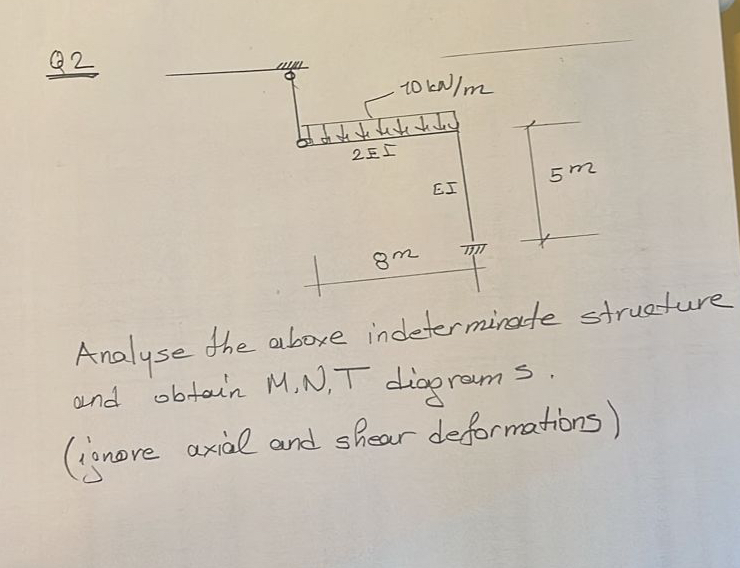 Q2
10 kN/m
2EI
EI
5m
8m
Analyse the above indeterminate structure
and obtain M.N.T diagrams.
(ignore axial and shear deformations)